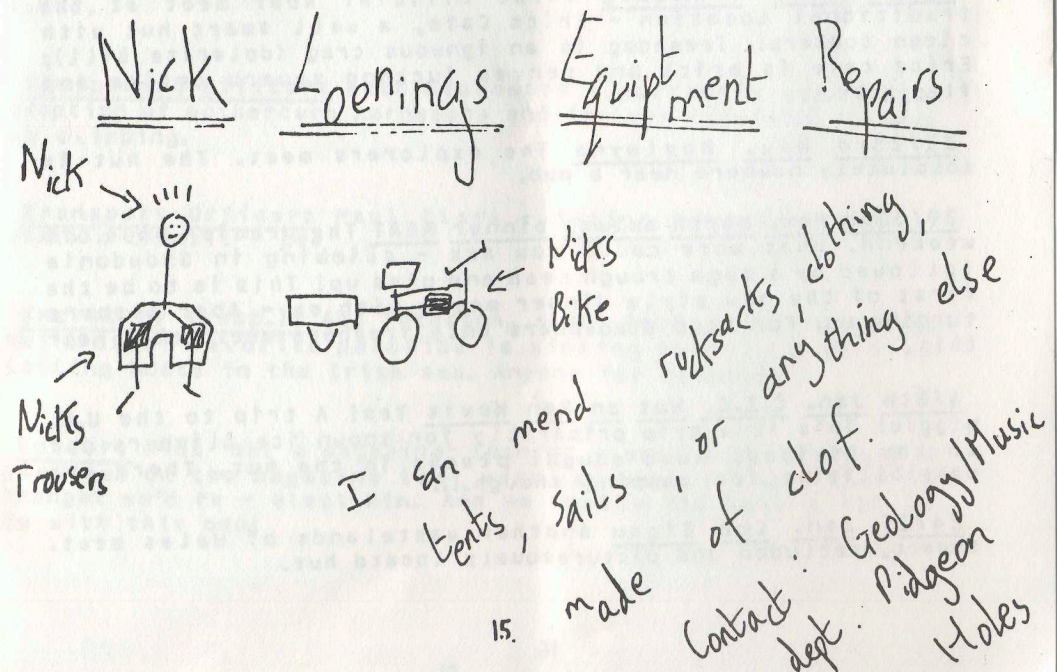 Nick Loenings Equiptment Repairs
Nick
Nicks
Bike
Nicks
Trousers
I can mend rucksacks, clothing,
tents, sails, or anything else
made of clof.
Contact. Geology/Music
dept. Pidgeon
Holes
15.